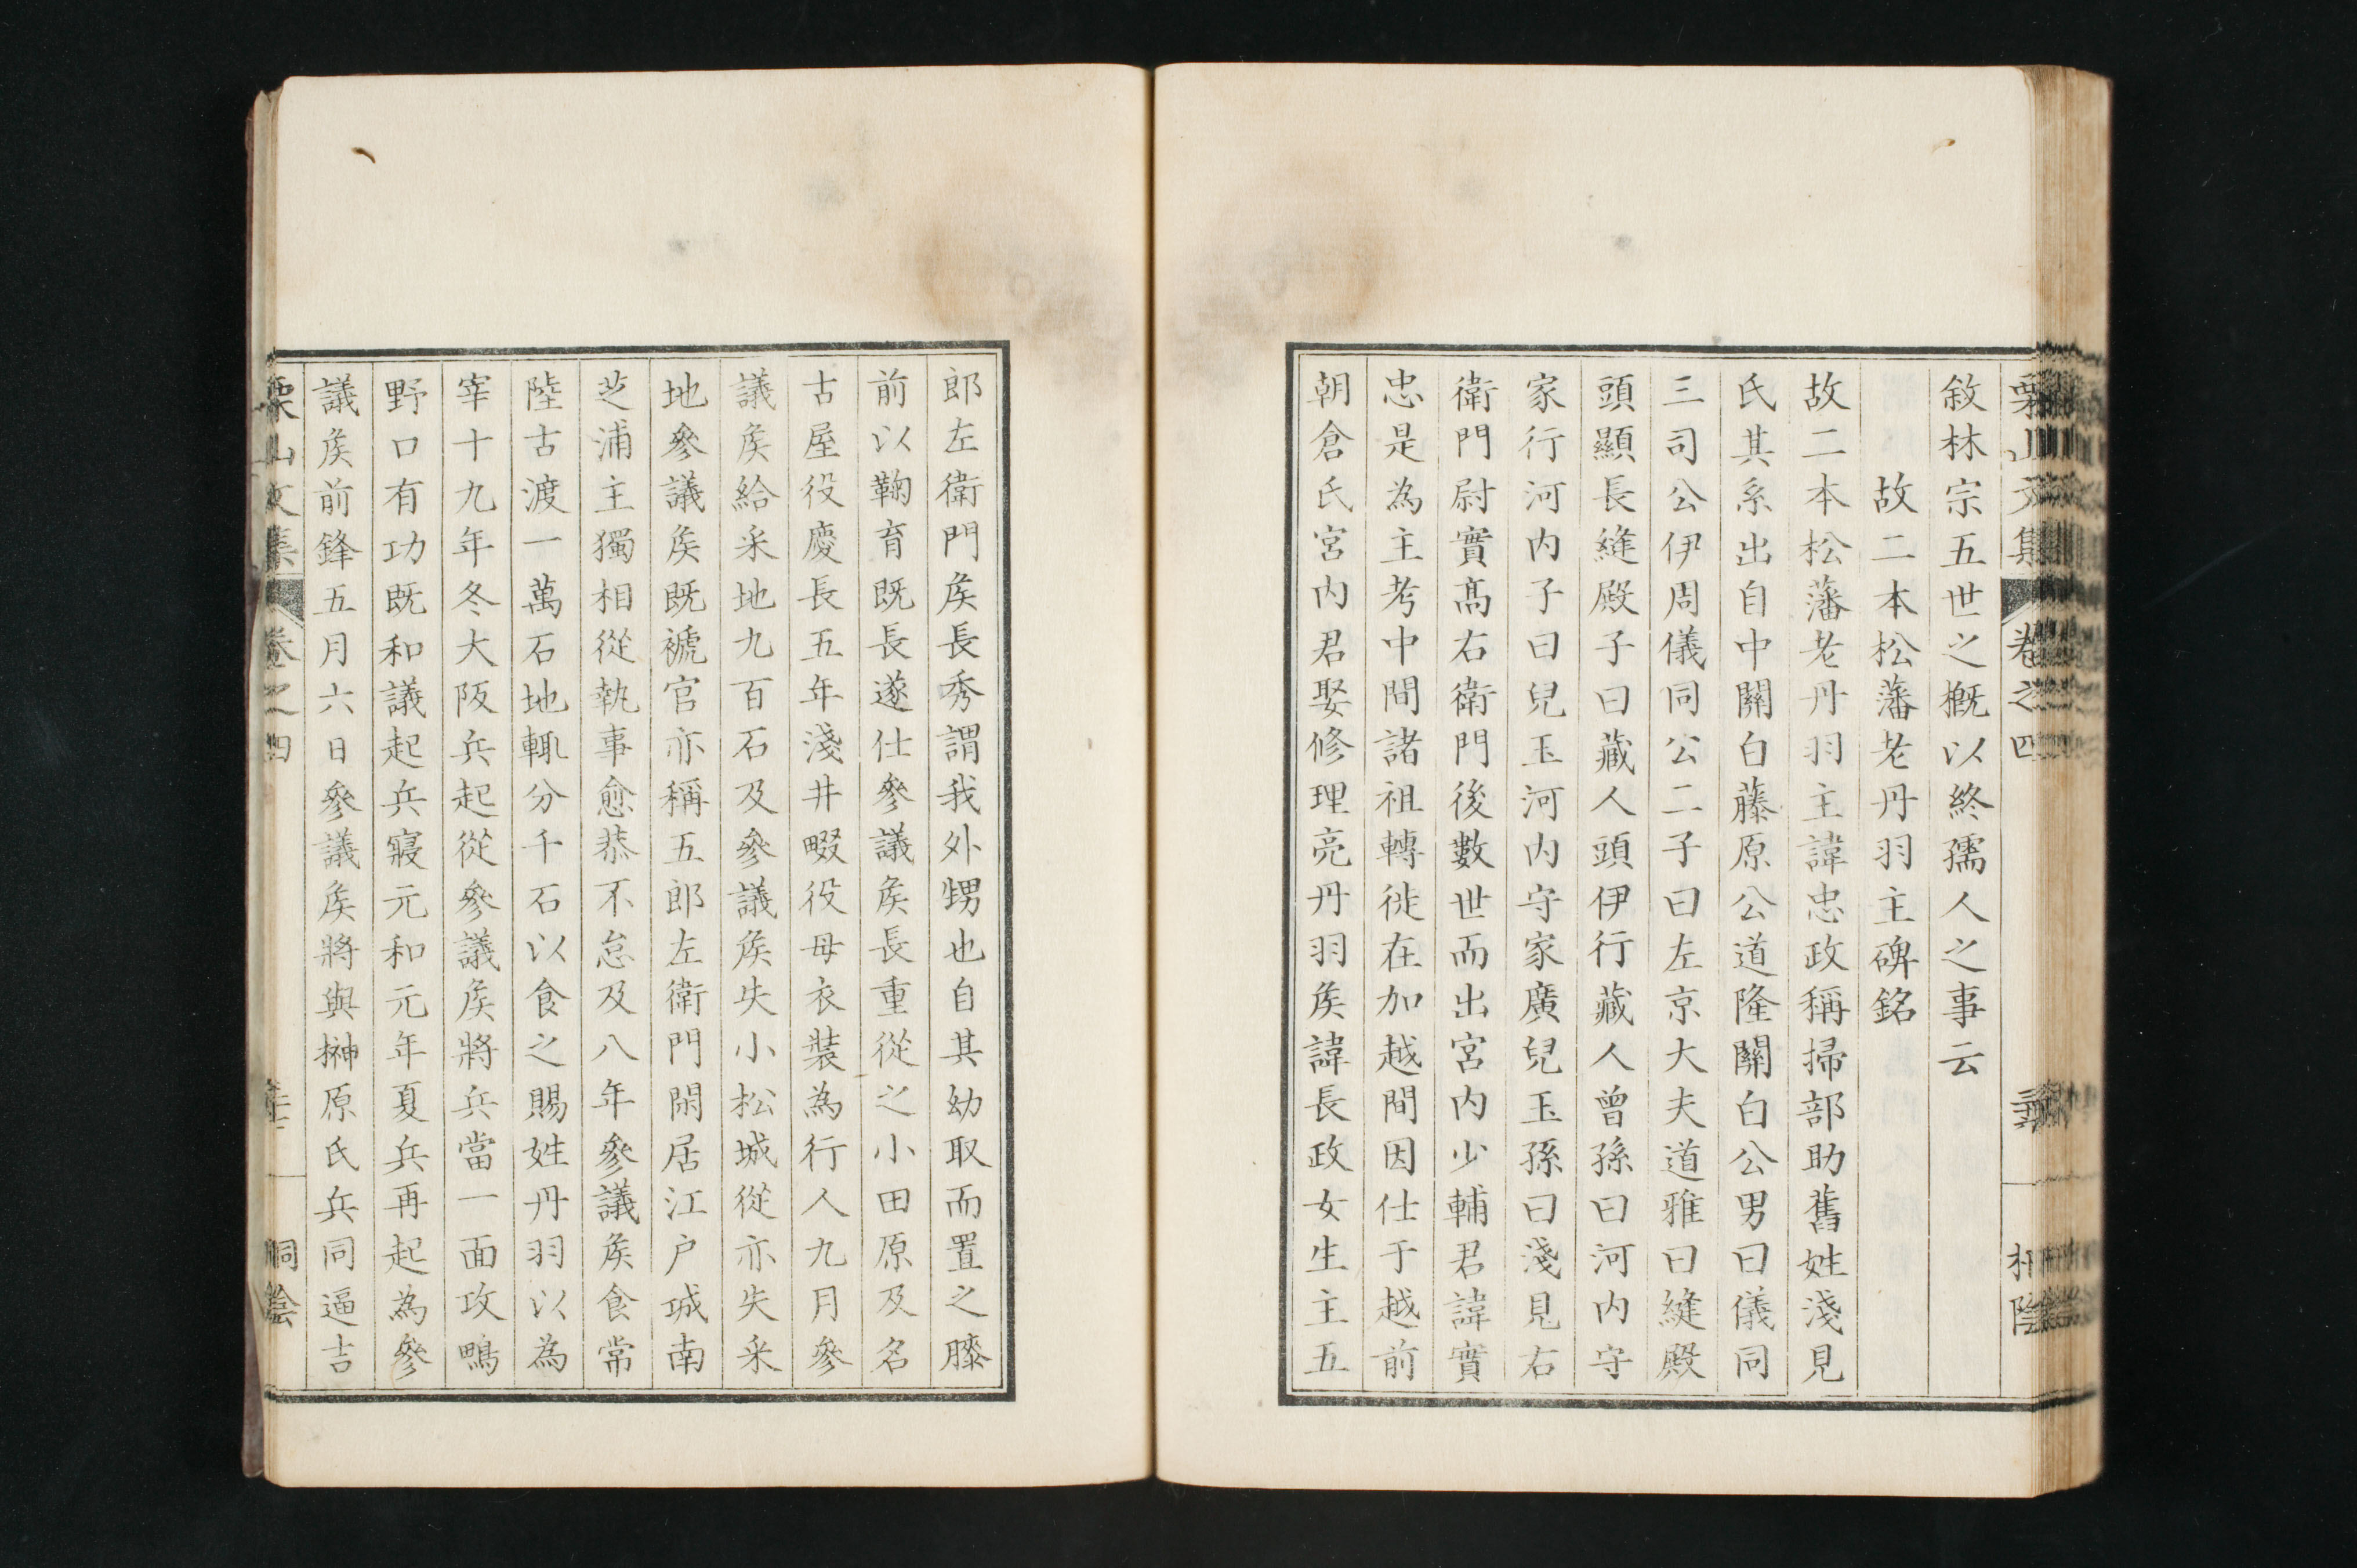 敘林宗五世之概以終孺人之事云
故二本松藩老丹羽主碑銘
故二本松藩老丹羽主諱忠政稱掃部助舊姓淺見
氏其系出自中關白藤原公道隆關白公男曰儀同
三司公伊周儀同公二子曰左京大夫道雅曰縫殿
頭顯長縫殿子曰藏人頭伊行藏人曾孫曰河内守
家行河内子曰兒玉河内守家廣兒玉孫曰淺見右
衛門尉實髙右衛門後數世而出宮内少輔君諱實
忠是為主考中間諸祖轉徙在加越間因仕于越前
朝倉氏宮内君娶修理亮丹羽矦諱長政女生主五
郎左衛門矦長秀謂我外甥也自其幼取而置之膝
前以鞠育既長遂仕參議矦長重從之小田原及名
古屋役慶長五年淺井畷役母衣裝為行人九月參
議矦給采地九百石及參議矦失小松城從亦失采
地參議矦既褫官亦稱五郎左衛門閑居江户城南
芝浦主獨相從執事愈恭不怠及八年參議矦食常
陸古渡一萬石地輒分千石以食之賜姓丹羽以為
宰十九年冬大阪兵起從參議矦將兵當一面攻鴫
野口有功既和議起兵寢元和元年夏兵再起為參
議矦前鋒五月六日參議矦將與榊原氏兵同逼吉
栗山文集 卷之四